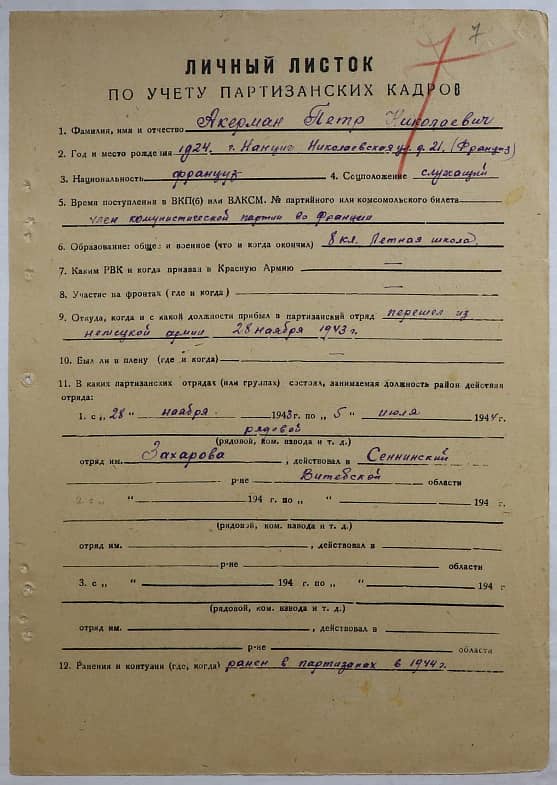 7
ЛИЧНЫЙ ЛИСТОК
ПО УЧЕТУ ПАРТИЗАНСКИХ КАДРОВ
1. Фамилия, имя и отчество Акерман Петр Николаевич
2. Год и место рождения 1924. г. Нанциг Николаевская ул. д. 21. (Франция)
3. Национальность француз 4. Соцположение служащий
5. Время поступления в ВКП(б) или ВЛКСМ. № партийного или комсомольского билета
член коммунистической партии во Франции
6. Образование: общее и военное (что и когда окончил) 8 кл. Летная школа.
7. Каким РВК и когда призван в Красную Армию —
8. Участие на фронтах (где и когда) —
9. Откуда, когда и с какой должности прибыл в партизанский отряд перешел из
немецкой армии 28 ноября 1943 г.
10. Был ли в плену (где и когда) —
11. В каких партизанских отрядах (или группах) состоял, занимаемая должность район действия
отряда:
1. с „28“ ноября 1943 г. по „5“ июля 1944 г.
рядовой
(рядовой, ком. взвода и т. д.)
отряд им. Захарова, действовал в Сеннинский
р-не Витебской области
2. с „ “ 194 г. по „ “ 194 г.
(рядовой, ком. взвода и т. д.)
отряд им. , действовал в
р-не области
3. с „ “ 194 г. по „ “ 194 г.
(рядовой, ком. взвода и т. д.)
отряд им. , действовал в
р-не области
12. Ранения и контузии (где, когда) ранен в партизанах в 1944 г.